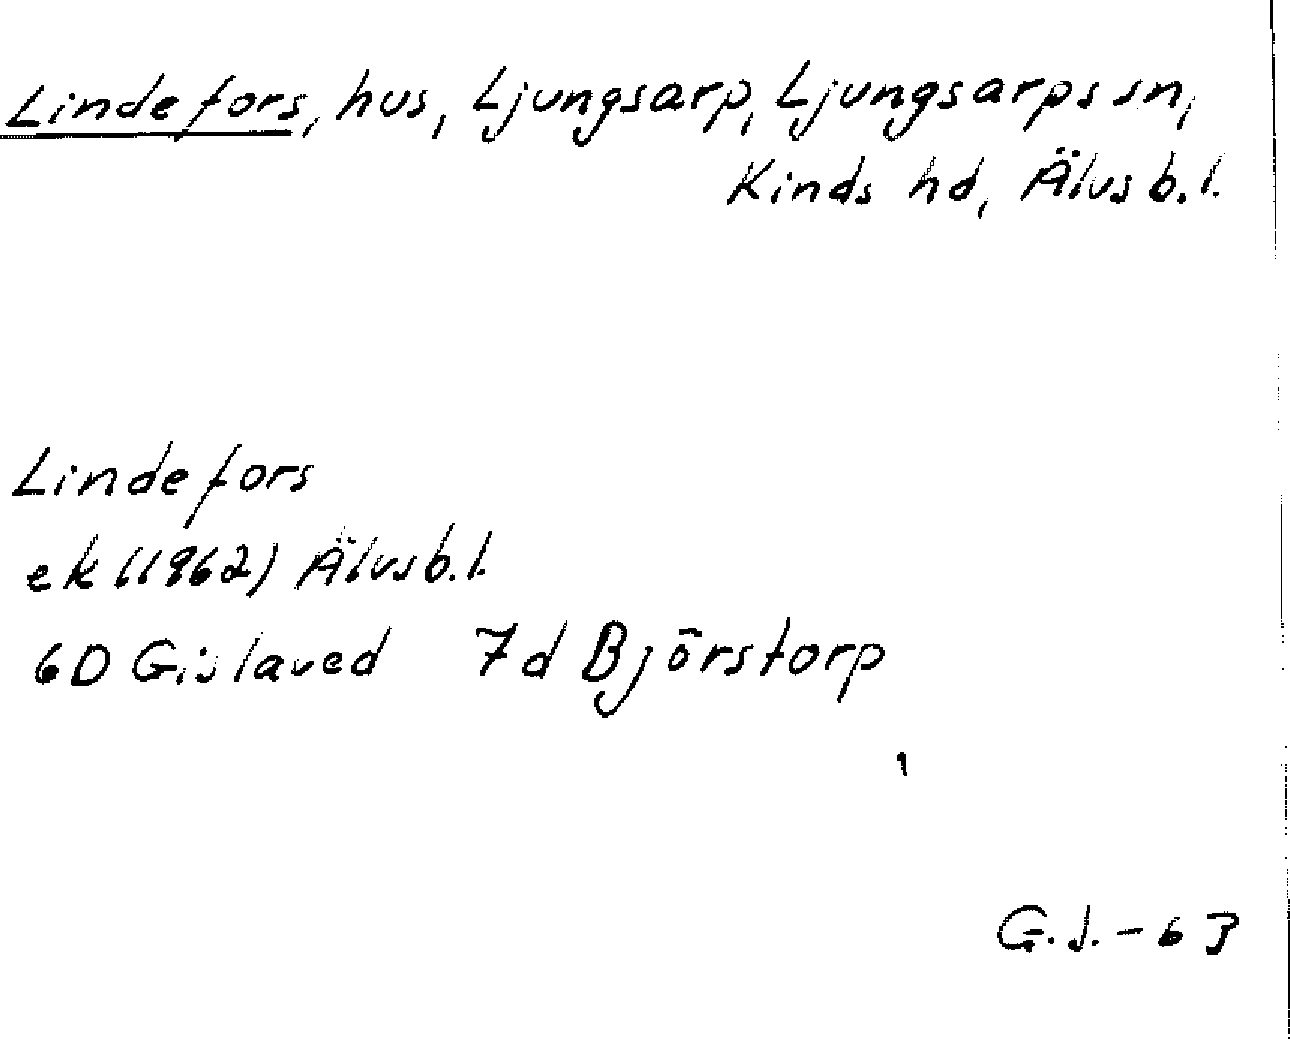 Lindefors, hus, Ljungsarp, Ljungsarps sn,
Kinds hd, Älvsb.l.
Lindefors
ek (1962) Älvsb.l.
6D Gislaved 7d Björstorp
G.J.-63